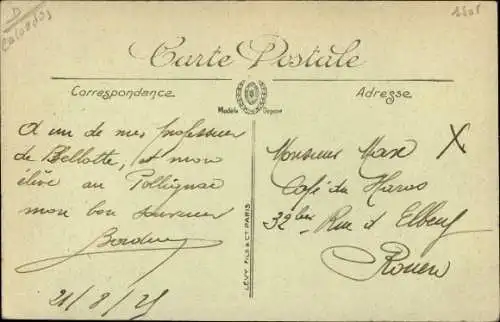 D
Calvados
Carte Postale
Correspondance
Adresse
Modèle Déposé
A un de mes professeur
de Bellotte, et mon
élève au
mon bon souvenir
21/8/25
Monsieur Max
Café du Havre
32 bis Rue d Elbeuf
Rouen
X
LÉVY FILS & Cie PARIS